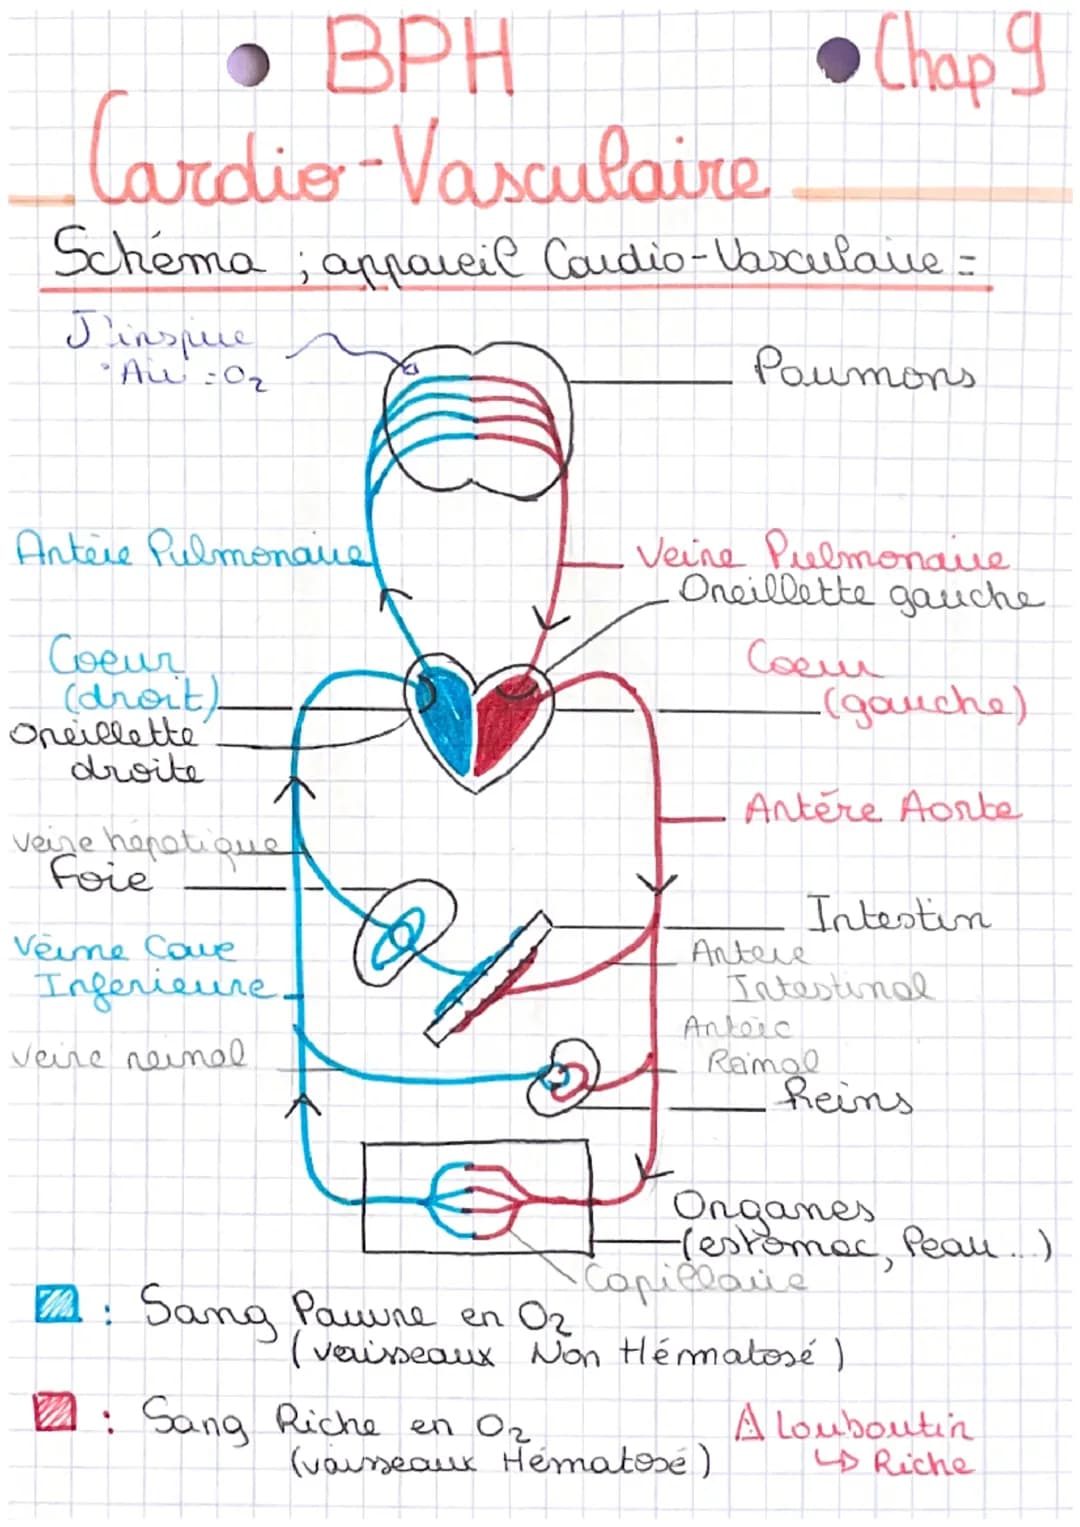 BPH
Chap 9
Cardio-Vasculaire
Schéma ; appareil Cardio-Vasculaire =
J'inspire
Air = O2
Poumons
Artère Pulmonaire
Veine Pulmonaire
Oreillette gauche
Coeur
(droit)
Oreillette
droite
Coeur
(gauche)
Artère Aorte
Veine hépatique
Foie
Intestin
Veine Cave
Inferieure
Artère
Intestinal
Artère
Reinal
Veine reinal
Reins
Organes
(estomac, Peau...)
Capillaire
: Sang Pauvre en O2
(vaisseaux Non Hématosé)
: Sang Riche en O2
(vaisseaux Hématosé)
⚠ Louboutin
↳ Riche